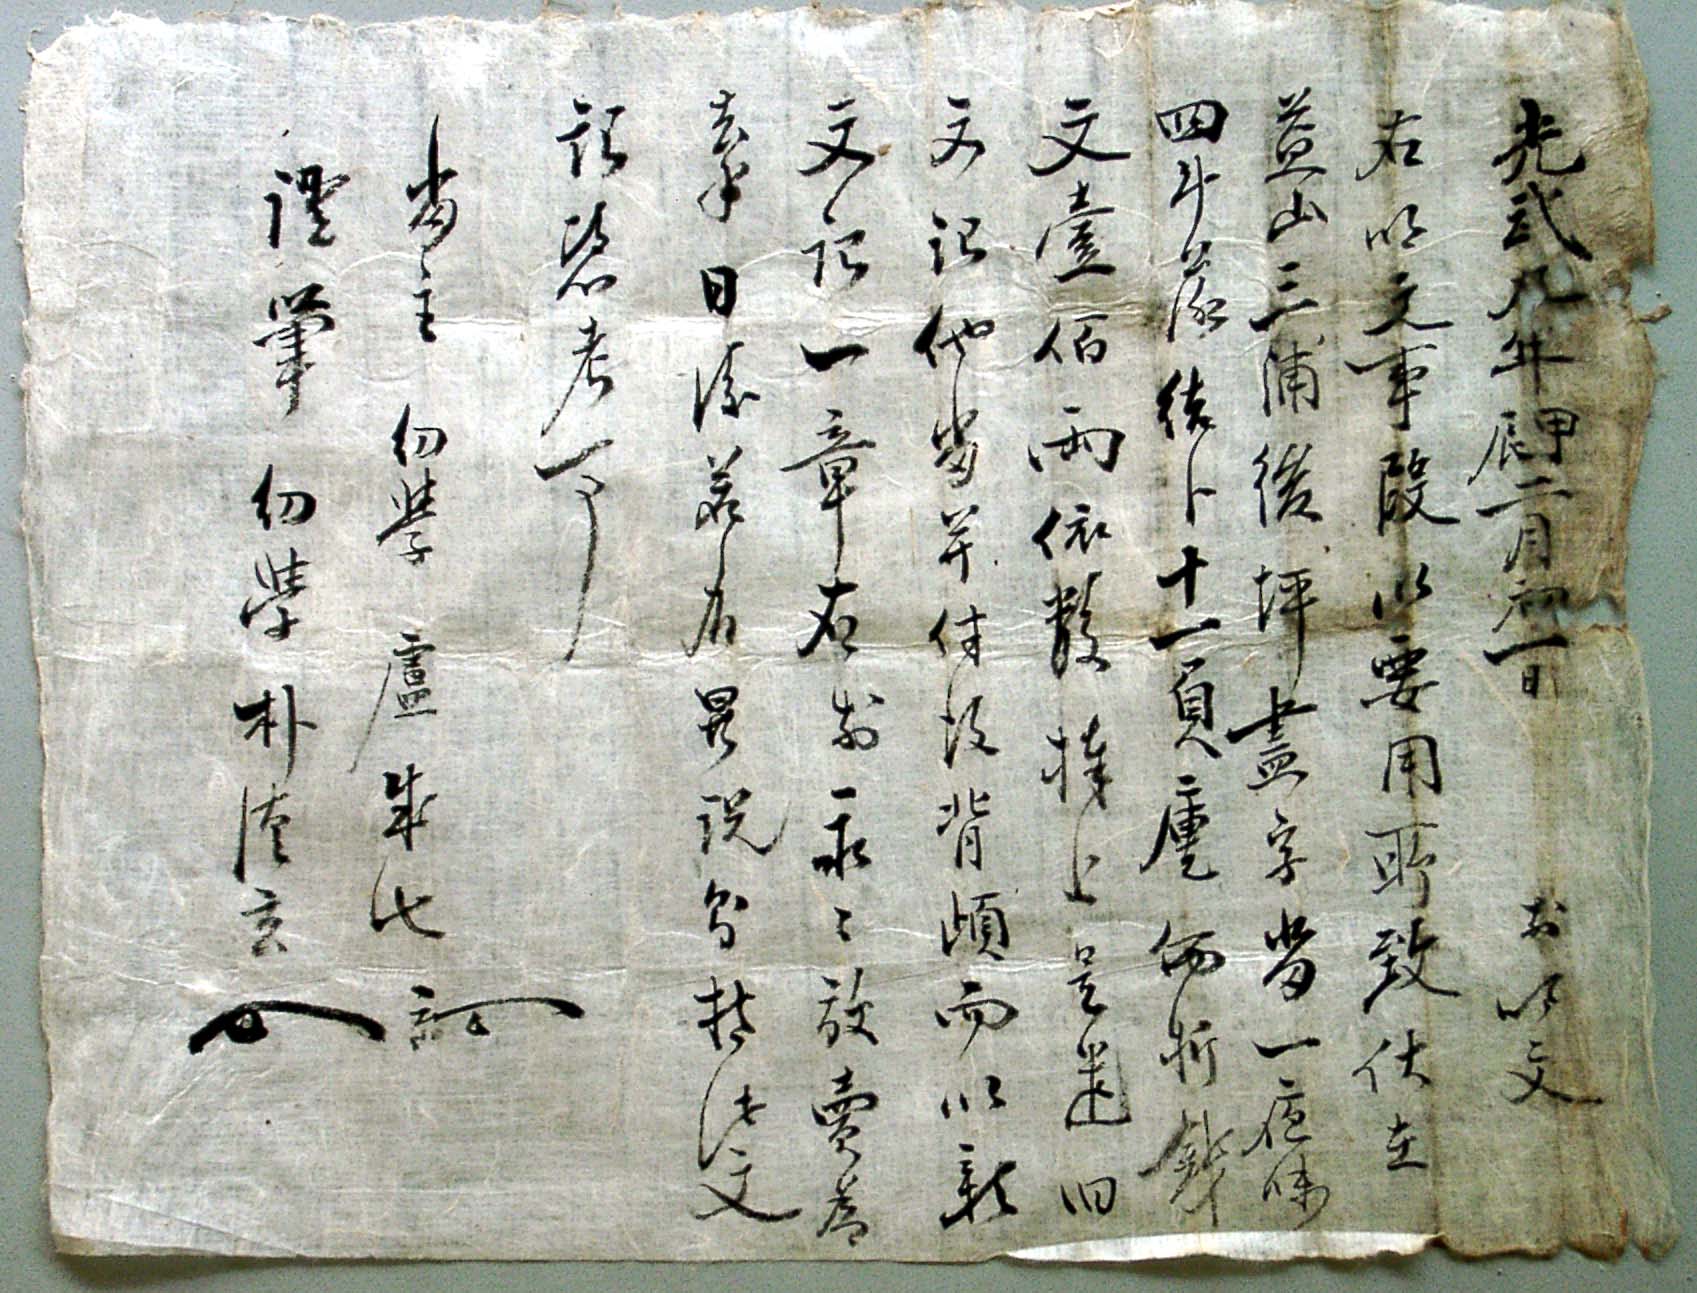 光武九年甲辰二月初一日 前明文
右明文事段以要用所致伏在
益山三浦後坪盡字畓一夜味
四斗落結卜十一負㢱價折錢
文壹佰兩依數捧上是遣旧
文記他畓并付故背頉而以新
文記一章右前永〻放賣爲
去乎日後若有異說則持此文
記憑考事
畓主 幼學 盧 七
證筆 幼學 朴